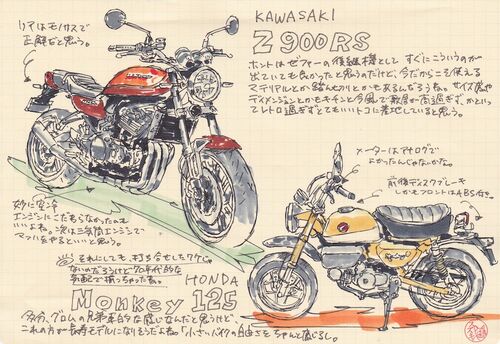 リアはモノサスで
正解だと思う。
KAWASAKI
Z900RS
ホントはゼファーの後継機として すぐにこういうのが
出ていても良かったと思うのだけど、今だからこそ使える
マテリアルとか踏ん切りとかもあるんだろうね。サイズ感や
ディメンションとかもキチンと今風で敷居が高過ぎずかといっ
てレトロ過ぎずとてもいいトコに着地していると思う。
メーターはアナログで
よかったんじゃないかな。
前後ディスクブレーキ
しかもフロントはABS付き。
妙に空冷
エンジンにこだわらなかったのも
いいよね。次は三気筒エンジンで
マッハをやるといいと思う。
それにしても、打ち合せしたワケじゃ
ないのだろうけど70年代的な
気配で揃っちゃったね。
HONDA
Monkey 125
多分、グロムの兄弟車的な感じなんだと思うけど、
これの方が長寿モデルになりそうだよね。「小さいバイクの自由さ」をちゃんと感じるし。